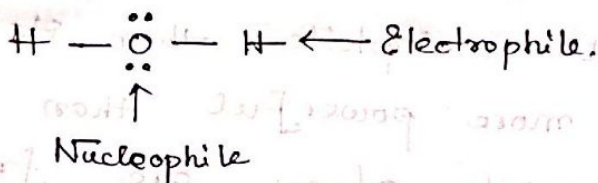 H — Ö — H ← Electrophile.
Nucleophile